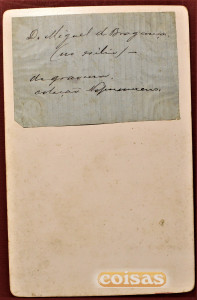 D. Miguel de Bragança
(no exilio) —
de gravura.
coisas